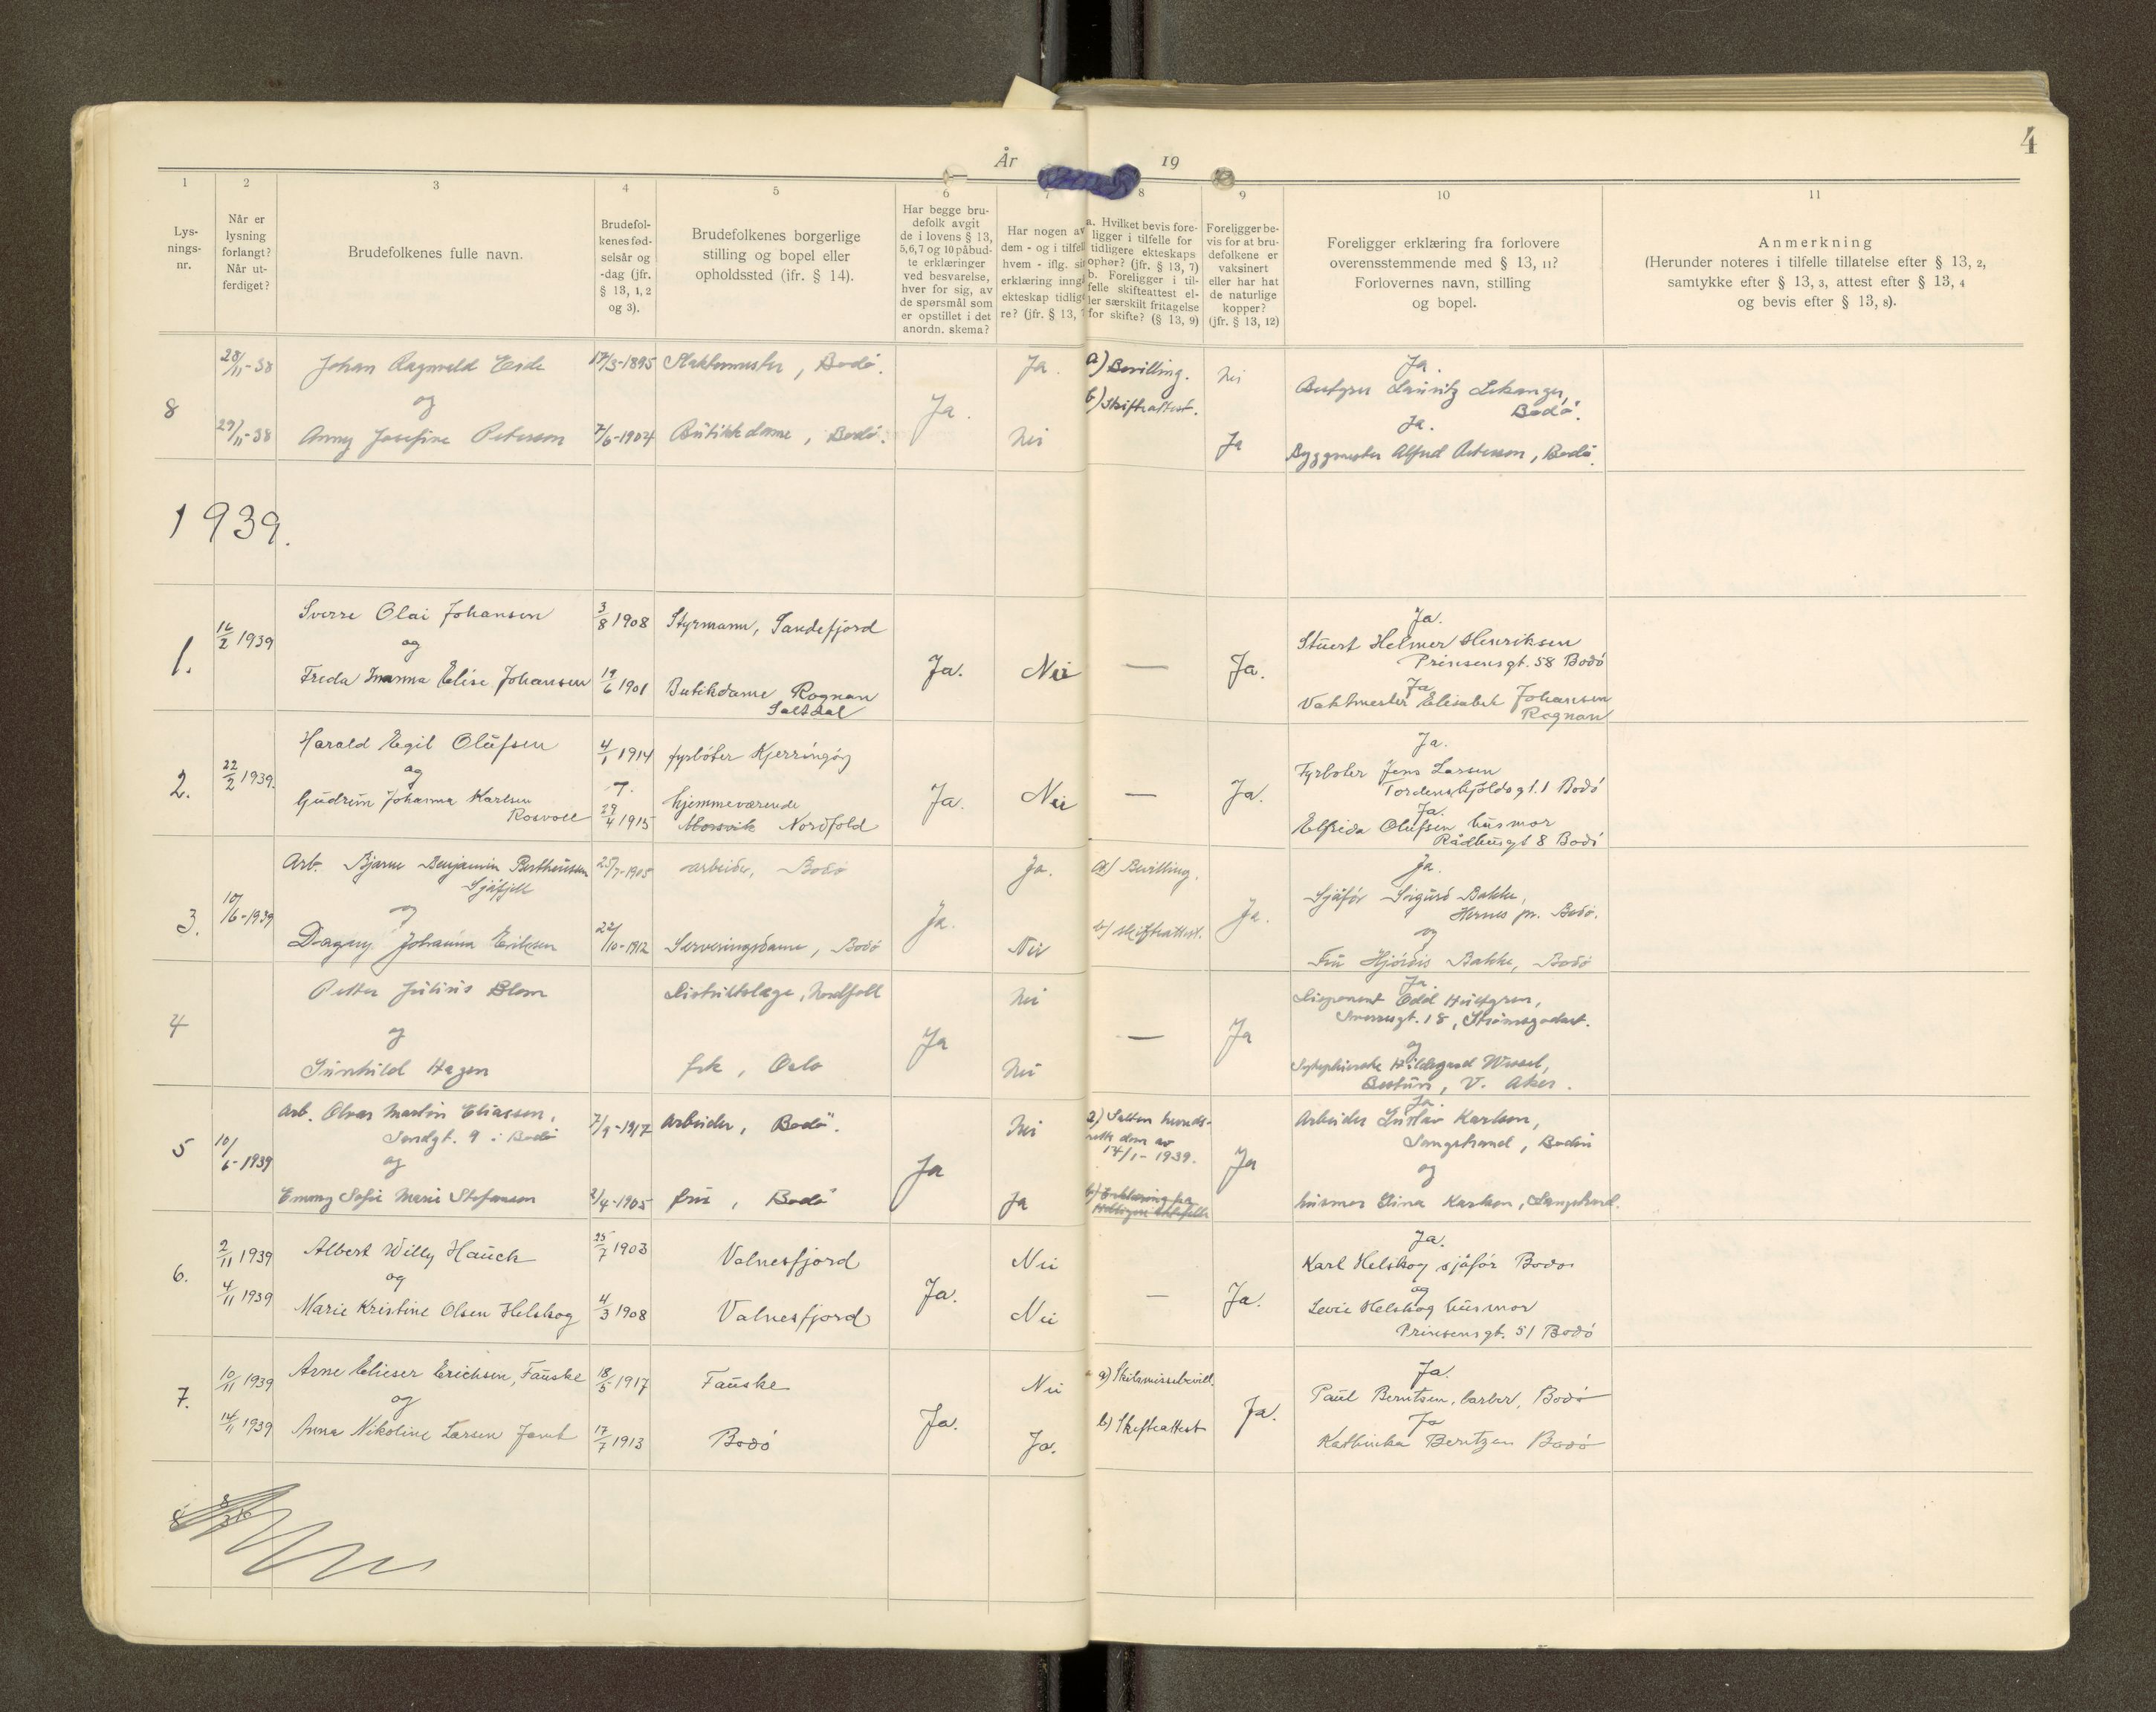 År 19
4
1 2 3 4 5 6 7 8 9 10 11
Lys-
nings-
nr.
Når er
lysning
forlangt?
Når ut-
ferdiget?
Brudefolkenes fulle navn.
Brudefol-
kenes fød-
selsår og
-dag (jfr.
§ 13, 1, 2
og 3).
Brudefolkenes borgerlige
stilling og bopel eller
opholdssted (jfr. § 14).
Har begge bru-
defolk avgit
de i lovens § 13,
5, 6, 7 og 10 påbud-
te erklæringer
ved besvarelse,
hver for sig, av
de spørsmål som
er opstillet i det
anordn. skema?
Har nogen av
dem - og i tilfel
hvem - iflg. si
erklæring inngå
ekteskap tidlig
re? (jfr. § 13,
a. Hvilket bevis fore-
ligger i tilfelle for
tidligere ekteskaps
ophør? (jfr. § 13, 7)
b. Foreligger i til-
felle skifteattest el-
ler særskilt fritagelse
for skifte? (§ 13, 9)
Foreligger be-
vis for at bru-
defolkene er
vaksinert
eller har hat
de naturlige
kopper?
(jfr. § 13, 12)
Foreligger erklæring fra forlovere
overensstemmende med § 13, 11?
Forlovernes navn, stilling
og bopel.
Anmerkning
(Herunder noteres i tilfelle tillatelse efter § 13, 2,
samtykke efter § 13, 3, attest efter § 13, 4
og bevis efter § 13, 8).
8
28/11-38
29/11-38
Johan Ragnvald Eide
og
Anny Josefine Peterson
17/3-1895
7/6-1904
Slaktemester, Bodø.
Butikkdame, Bodø.
Ja.
Ja.
Nei
a) Bevilling.
b) Skifteattest.
Nei
Ja
Ja.
Lauritz Lekanger,
Bodø.
Ja.
Byggmester Alfred Peterson, Bodø.
1939.
1.
16/2 1939
Sverre Olai Johansen
og
Freda Inanna Elise Johansen
3/8 1908
19/6 1901
Styrmann, Sandefjord
Butikdame Rognan
Saltdal
Ja.
Nei
—
Ja.
Ja.
Stuert Helmer Henriksen
Prinsensgt. 58 Bodø
Ja
Vaktmester Elisabet Johansen
Rognan
2.
22/2 1939.
Harald Egil Olufsen
og
Gudrun Johanna Karlsen
Rosvoll
4/1 1914
7.
29/4 1915
fyrbøter Kjerringøy
hjemmeværende
Morsvik Nordfold
Ja.
Nei
—
Ja.
Ja.
Fyrbøter Jens Larsen
Tordenskjoldsgt. 1 Bodø
Ja.
Elfrida Olufsen husmor
Rådhusgt 8 Bodø
3.
10/6-1939
Arb. Bjarne Benjamin Bertheussen
Sjåfjell
og
Dagny Johanna Eriksen
25/7-1905
22/10-1912
arbeider, Bodø
Serveringsdame, Bodø
Ja.
Ja.
Nei
a) Bevilling.
b) skifteattest.
Ja.
Ja.
Sjåfør Sigurd Bakke,
Hernes pr. Bodø.
og
Fru Hjørdis Bakke, Bodø
4
Petter Julius Blom
og
Sunhild Hagen
Distriktslæge, Nordfold
frk, Oslo
Ja
Nei
Nei
—
Ja
Ja.
Disponent Odd Hultgren,
18, Strømsgodset.
og
Sykepleierske Hildegard Wessel,
V. Aker.
5
10/6-1939
Arb. Olvar Martin Eliassen,
Sandgt. 9 i Bodø
og
Emmy Sofie Marie Stefansen
7/9-1917
2/4-1905
Arbeider, Bodø.
frue, Bodø
Ja
Nei
Ja
a) Salten herreds-
retts dom av
14/1-1939.
b) Erklæring fra
tidligere ektefelle
Ja
Ja.
Arbeider Gustav Karlsen,
Langstrand, Bodin
og
husmor Gina Karlsen, Langstrand.
6.
2/11 1939
4/11 1939
Albert Willy Hauch
og
Marie Kristine Olsen Helskog
25/7 1903
4/3 1908
Valnesfjord
Valnesfjord
Ja.
Nei
Nei
—
Ja.
Ja.
Karl Helskog sjåfør Bodø
og
Levie Helskog husmor
Prinsensgt. 51 Bodø
7.
10/11 1939
14/11 1939
Arne Elieser Erichsen, Fauske
og
Anna Nikoline Larsen
18/5 1917
17/7 1913
Fauske
Bodø
Ja.
Nei
Ja.
a) Skilsmissebevill.
b) Skifteattest
Ja.
Ja.
Paul Berntsen, barber, Bodø
Ja
Kathinka Berntzen Bodø